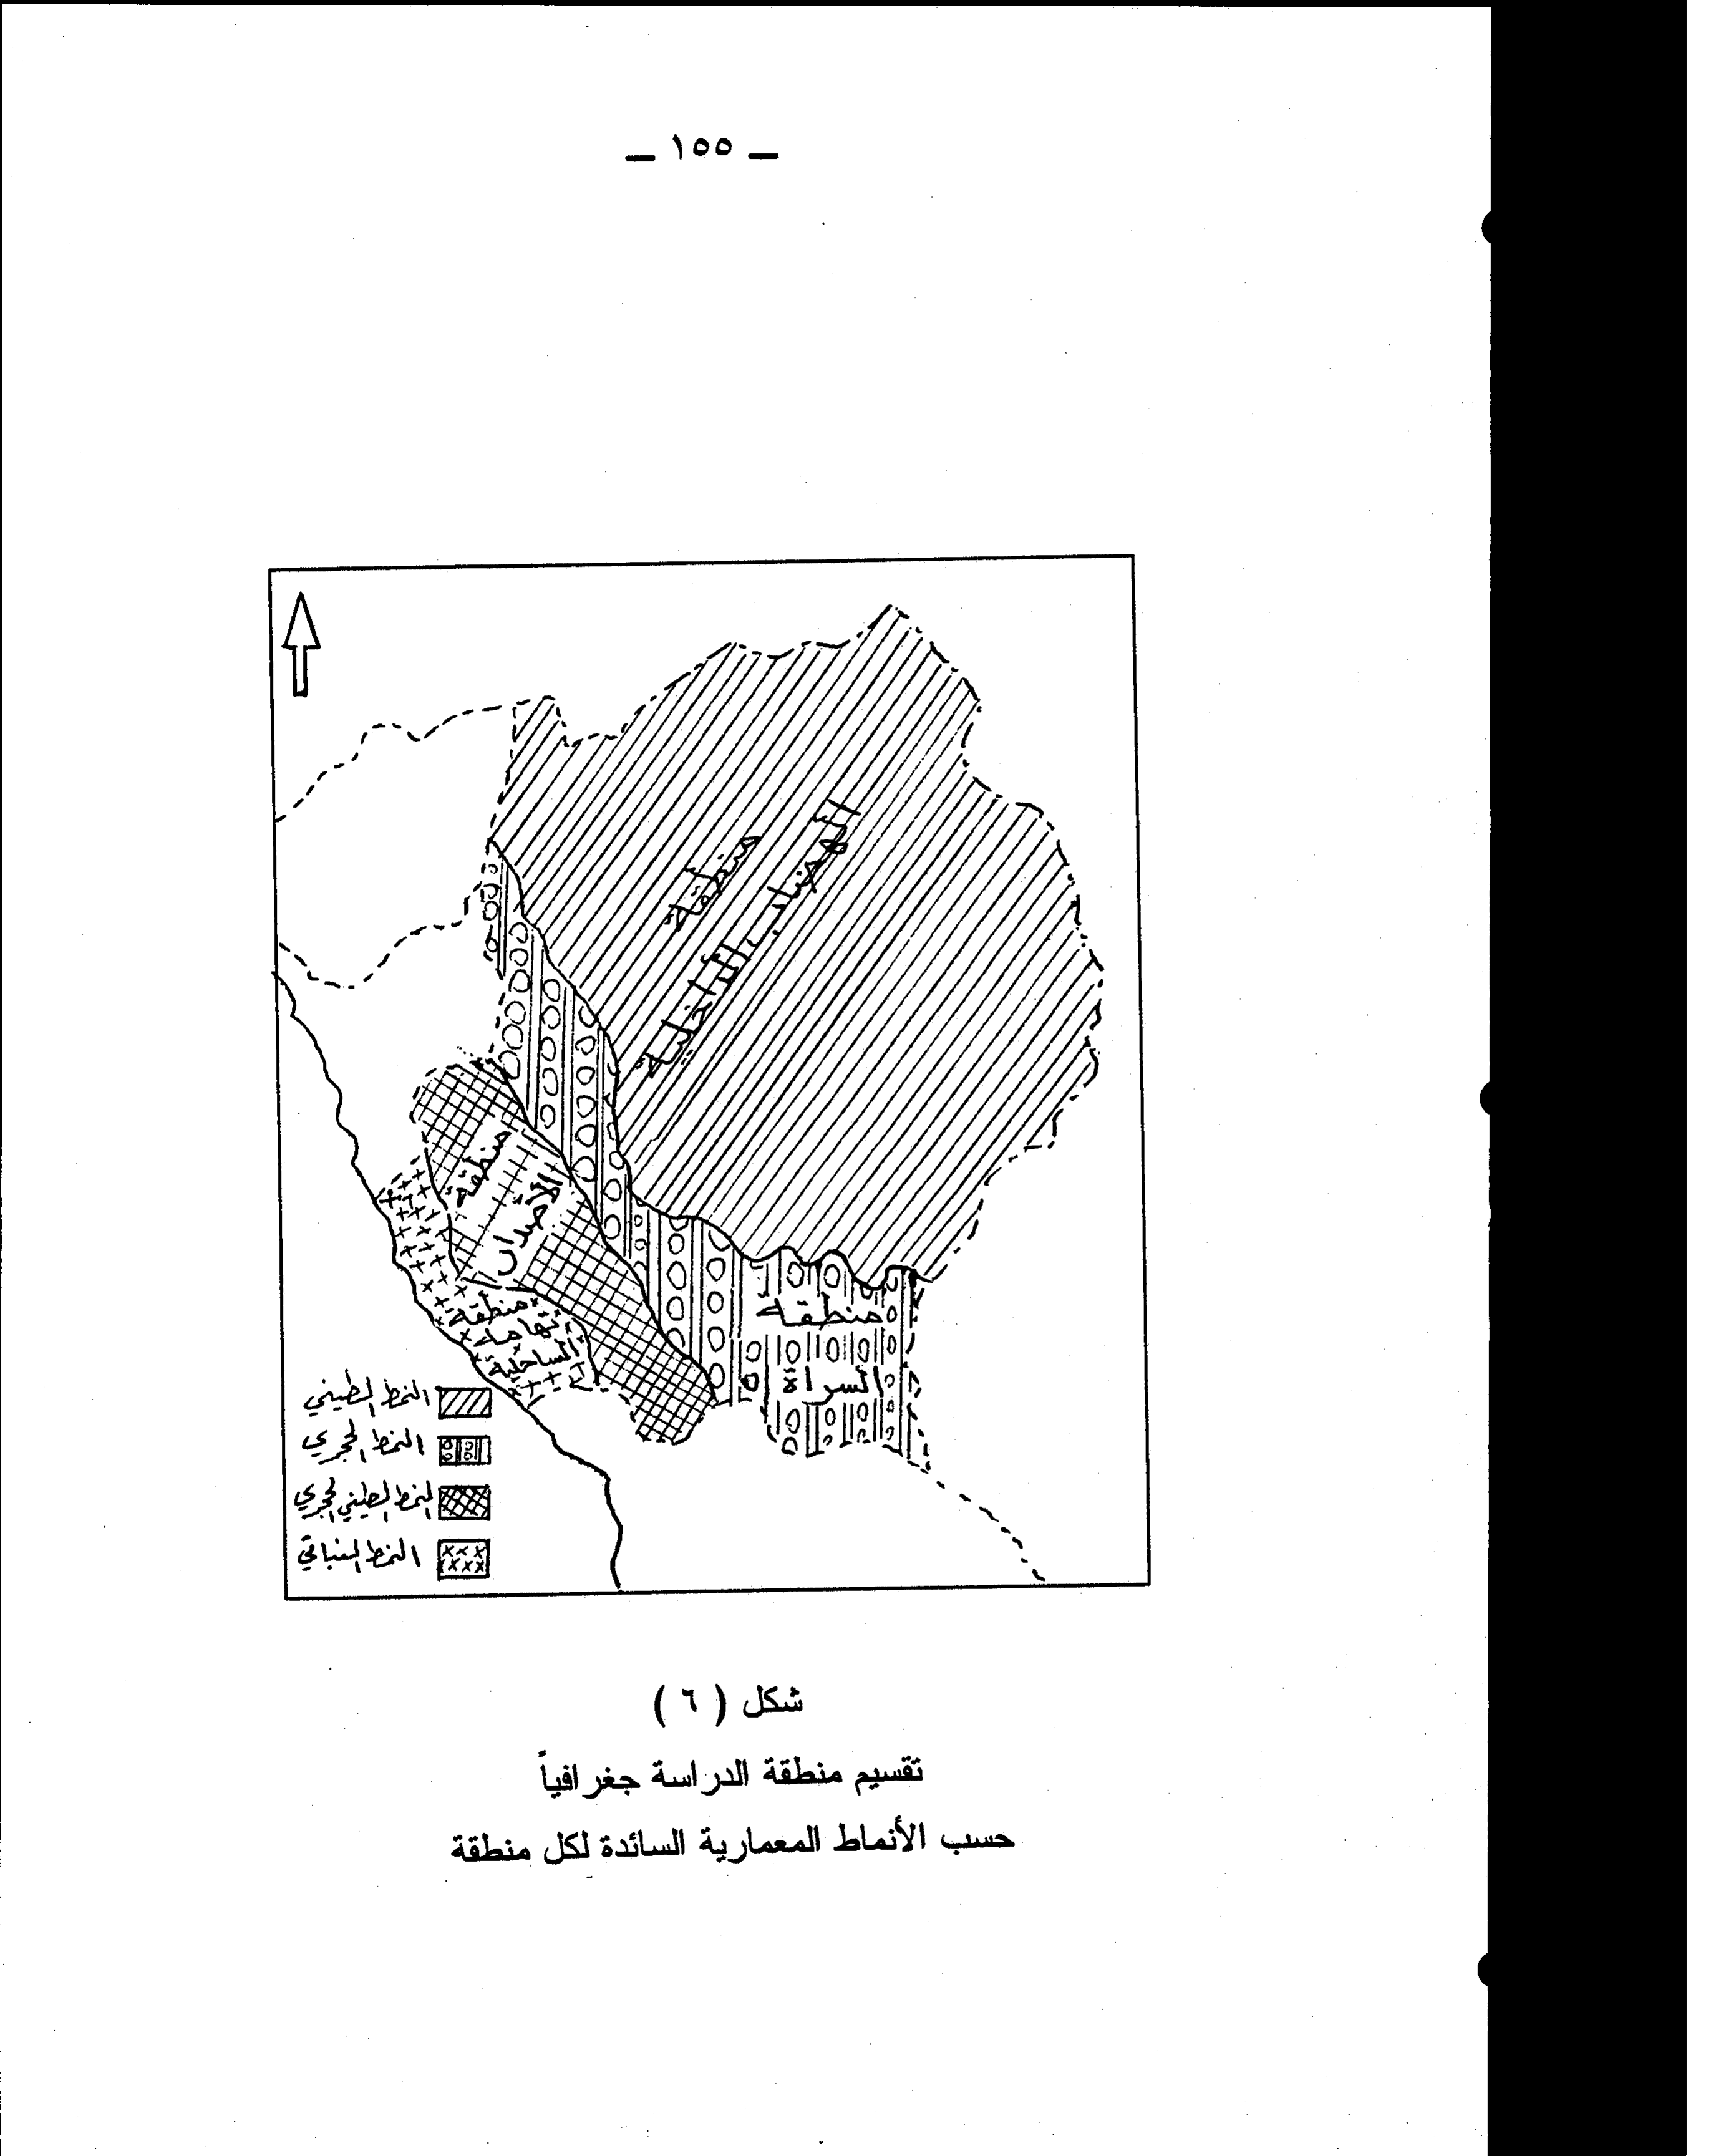 — ١٥٥ —
منطقة
الهضاب الداخلية
منطقة
الأصدار
منطقة
تهامة
الساحلية
منطقة
السراة
النمط الطيني
النمط الحجري
النمط الطيني الحجري
النمط النباتي
شكل ( ٦ )
تقسيم منطقة الدراسة جغرافياً
حسب الأنماط المعمارية السائدة لكل منطقة